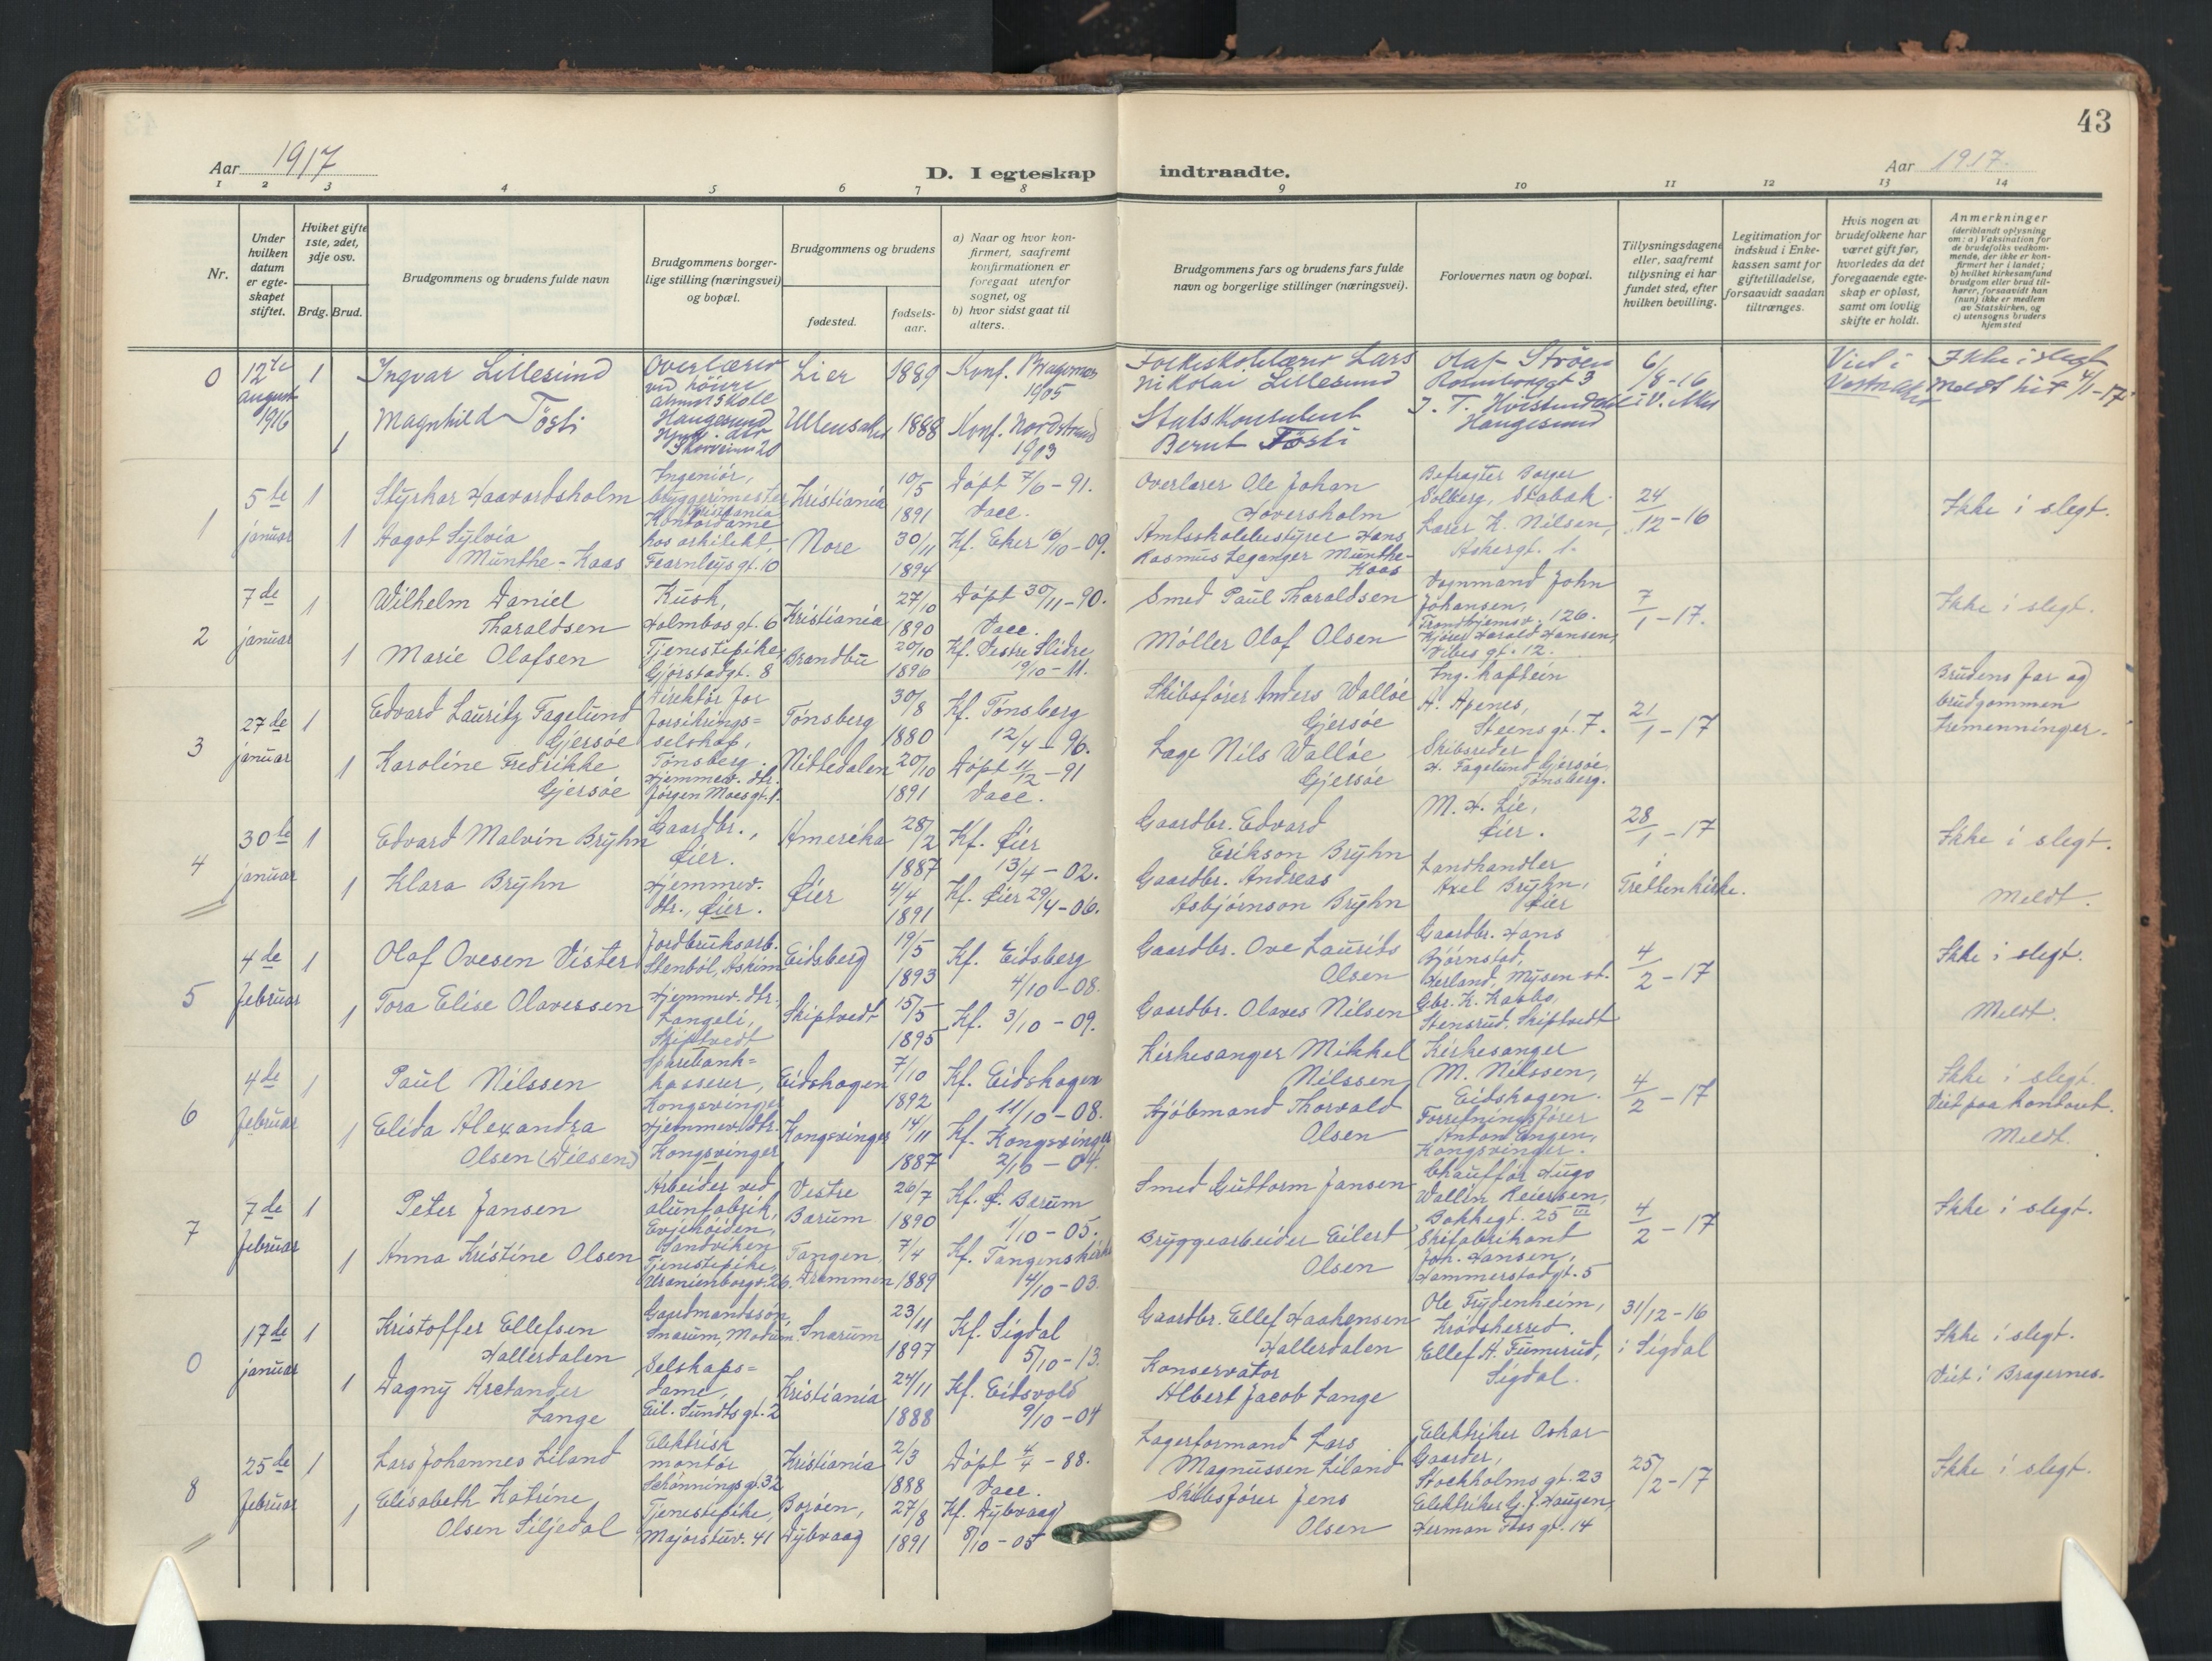 43
Aar 1917
D. I egteskap indtraadte.
Aar 1917.
1 2 3 4 5 6 7 8 9 10 11 12 13 14
Nr.
Under hvilken datum er egteskapet stiftet.
Hvilket gifte 1ste, 2det, 3dje osv.
Brdg. Brud.
Brudgommens og brudens fulde navn
Brudgommens borgerlige stilling (næringsvei) og bopæl.
Brudgommens og brudens
fødested.
fødselsaar.
a) Naar og hvor konfirmert, saafremt konfirmationen er foregaat utenfor sognet, og
b) hvor sidst gaat til alters.
Brudgommens fars og brudens fars fulde navn og borgerlige stillinger (næringsvei).
Forlovernes navn og bopæl.
Tillysningsdagene eller, saafremt tillysning ei har fundet sted, efter hvilken bevilling.
Legitimation for indskud i Enkekassen samt for giftetilladelse, forsaavidt saadan tiltrænges.
Hvis nogen av brudefolkene har været gift før, hvorledes da det foregaaende egteskap er opløst, samt om lovlig skifte er holdt.
Anmerkninger
(deriblandt oplysning om: a) Vaksination for de brudefolks vedkommende, der ikke er konfirmert her i landet; b) hvilket kirkesamfund brudgom eller brud tilhører, forsaavidt han (hun) ikke er medlem av Statskirken, og c) utensogns bruders hjemsted
0
12te august 1916
1
Ingvar Lillesund
Overlærer ved høiere almenskole Haugesund
Lier
1889
Konf. Bragernes 1905
Folkeskolelærer Lars Nikolai Lillesund
Olaf Strøm
6/8-16
i V. Aker
Viet i Vestre Aker
Ikke i slegt
Meldt hit 4/1-17
1
Magnhild Tösti
Ullensaker
1888
Konf. Nordstrand 1903
Statskonsulent Bernt Tösti
Haugesund
1
5te januar
1
Styrkar Haavardsholm
Ingeniør, bryggerimester Kristiania
Kristiania
10/5 1891
Døpt 7/6-91. Vacc.
Overlærer Ole Johan Hoversholm
Befragter Borger Solberg, Stabæk.
24/12-16
Ikke i slegt.
1
Aagot Sylvia Munthe-Kaas
Kontordame hos arkitekt, Fearnleys gt. 10
Nore
30/11 1894
Kf. Eker 10/10-09.
Amtsskolebestyrer Hans Rasmus Leganger Munthe-Kaas
Lærer K. Nilsen, Askergt. 1.
2
7de januar
1
Wilhelm Daniel Tharaldsen
Kusk, Holmbos gt. 6
Kristiania
27/10 1890
Døpt 30/11-90. Vacc.
Smed Paul Tharaldsen
Vognmand John Johansen, Trondhjemsv. 126.
7/1-17.
Ikke i slegt.
1
Marie Olafsen
Tjenestepike Gjørstadgt. 8
Brandbu
20/10 1896
Kf. Vestre Slidre 19/10-11.
Møller Olaf Olsen
Kjører Harald Hansen, Vibes gt. 12.
3
27de januar
1
Edvard Lauritz Fagelund Gjersøe
Direktør for forsikringsselskap, Tønsberg.
Tønsberg
30/8 1880
Kf. Tønsberg 12/4-96.
Skibsfører Anders Walløe Gjersøe
Ing. kaptein A. Apenes, Steens gt. 7.
21/1-17
Brudens far og brudgommen tremenninger.
1
Karoline Fredrikke Gjersøe
Hjemmev. dtr. Jørgen Moes gt. 1.
Nittedalen
20/10 1891
Døpt 11/12-91 Vacc.
Læge Nils Walløe Gjersøe
Skibsreder H. Fagelund Gjersøe, Tønsberg.
4
30te januar
1
Edvard Malvin Bryhn
Gaardbr., Øier.
Amerika
28/2 1887
Kf. Øier 13/4-02.
Gaardbr. Edvard Erikson Bryhn
M. H. Lie, Øier.
28/1-17
i Tretten kirke.
Ikke i slegt.
1
Klara Bryhn
Hjemmev. dtr., Øier.
Øier
4/4 1891
Kf. Øier 29/4-06.
Gaardbr. Andreas Asbjørnson Bryhn
Landhandler Axel Bryhn, Øier
Meldt.
5
4de februar
1
Olaf Ovesen Vister
Jordbruksarb. Stenbøl, Askim
Eidsberg
19/5 1893
Kf. Eidsberg 4/10-08.
Gaardbr. Ove Laurits Olsen
Gaardbr. Hans Bjørnstad, Herland, Mysen st.
4/2-17
Ikke i slegt.
1
Tora Elise Olavessen
Hjemmev. dtr. Langeli, Skiptvedt
Skiptvedt
15/5 1895
Kf. 3/10-09.
Gaardbr. Olaves Nilsen
Gbr. K. Kaabo, Stensrud, Skiptvedt
Meldt.
6
4de februar
1
Paul Nilssen
Sparebankkasserer, Kongsvinger
Eidskogen
7/10 1892
Kf. Eidskogen 11/10-08.
Kirkesanger Mikkel Nilssen
Kirkesanger M. Nilssen, Eidskogen.
4/2-17
Ikke i slegt.
Viet paa kontoret.
1
Elida Alexandra Olsen (Nielsen)
Hjemmev. dtr. Kongsvinger
Kongsvinger
14/11 1887
Kf. Kongsvinger 2/10-04.
Kjøbmand Thorvald Olsen
Forretningsfører Anton Engen, Kongsvinger.
Meldt.
7
7de februar
1
Peter Jansen
Arbeider ved alunfabrik, Evjehøiden, Sandviken
Vestre Bærum
26/7 1890
Kf. Ø. Bærum 1/10-05.
Smed Guttorm Jansen
Chauffør Hugo Wallin Reiersen, Bakkegt. 25 III
4/2-17
Ikke i slegt.
1
Anna Kristine Olsen
Tjenestepike, Uranienborgv. 26.
Tangen, Drammen
7/4 1889
Kf. Tangens kirke 4/10-03.
Bryggearbeider Eilert Olsen
Skifabrikant Joh. Hansen, Hammerstadgt. 5
0
17de januar
1
Kristoffer Ellefsen Hallerdalen
Gaardmandssøn, Snarum, Modum.
Snarum
23/11 1897
Kf. Sigdal 5/10-13.
Gaardbr. Ellef Haakensen Hallerdalen
Ole Frydenheim, Krødsherred.
31/12-16
i Sigdal
Ikke i slegt.
1
Dagny Arctander Lange
Selskapsdame, Eil. Sundts gt. 2
Kristiania
24/11 1888
Kf. Eidsvold 9/10-04
Konservator Albert Jacob Lange
Ellef A. Fumerud, Sigdal.
Viet i Bragernes.
8
25de februar
1
Lars Johannes Liland
Elektrisk montør Schønnings gt. 32
Kristiania
2/3 1888
Døpt 4/4-88. Vacc.
Lagerformand Lars Magnussen Liland
Elektriker Oskar Gaarder, Stockholms gt. 23
25/2-17
Ikke i slegt.
1
Elisabeth Katrine Olsen Siljedal
Tjenestepike, Majorstuv. 41
Borøen, Dybvaag
27/8 1891
Kf. Dybvaag 8/10-05
Skibsfører Jens Olsen
Elektriker G. J. Haugen, Herman Foss gt. 14